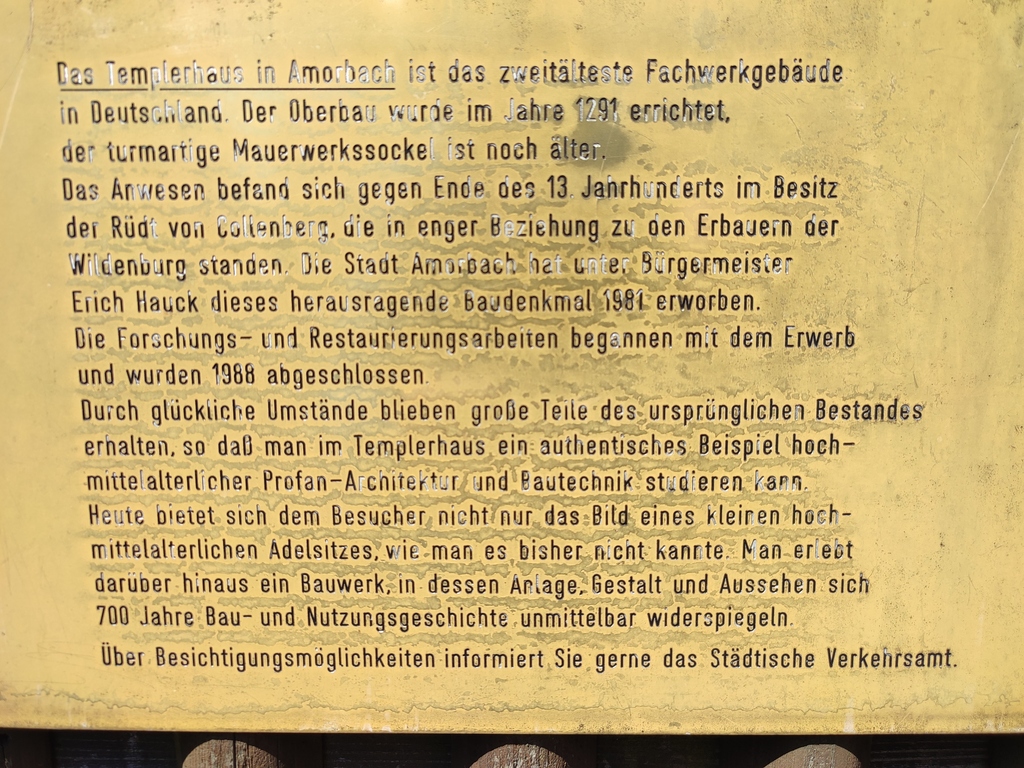 Das Templerhaus in Amorbach ist das zweitälteste Fachwerkgebäude
in Deutschland. Der Oberbau wurde im Jahre 1291 errichtet,
der turmartige Mauerwerkssockel ist noch älter.
Das Anwesen befand sich gegen Ende des 13. Jahrhunderts im Besitz
der Rüdt von Collenberg, die in enger Beziehung zu den Erbauern der
Wildenburg standen. Die Stadt Amorbach hat unter Bürgermeister
Erich Hauck dieses herausragende Baudenkmal 1981 erworben.
Die Forschungs- und Restaurierungsarbeiten begannen mit dem Erwerb
und wurden 1988 abgeschlossen.
Durch glückliche Umstände blieben große Teile des ursprünglichen Bestandes
erhalten, so daß man im Templerhaus ein authentisches Beispiel hoch-
mittelalterlicher Profan-Architektur und Bautechnik studieren kann.
Heute bietet sich dem Besucher nicht nur das Bild eines kleinen hoch-
mittelalterlichen Adelsitzes, wie man es bisher nicht kannte. Man erlebt
darüber hinaus ein Bauwerk, in dessen Anlage, Gestalt und Aussehen sich
700 Jahre Bau- und Nutzungsgeschichte unmittelbar widerspiegeln.
Über Besichtigungsmöglichkeiten informiert Sie gerne das Städtische Verkehrsamt.